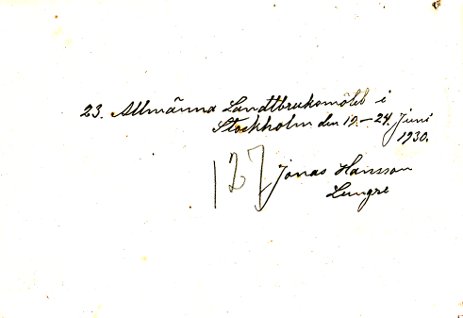 23. Allmänna Landtbruksmötet i
Stockholm den 19.-24. Juni
1930.
127
Jonas Hansson
Lungre